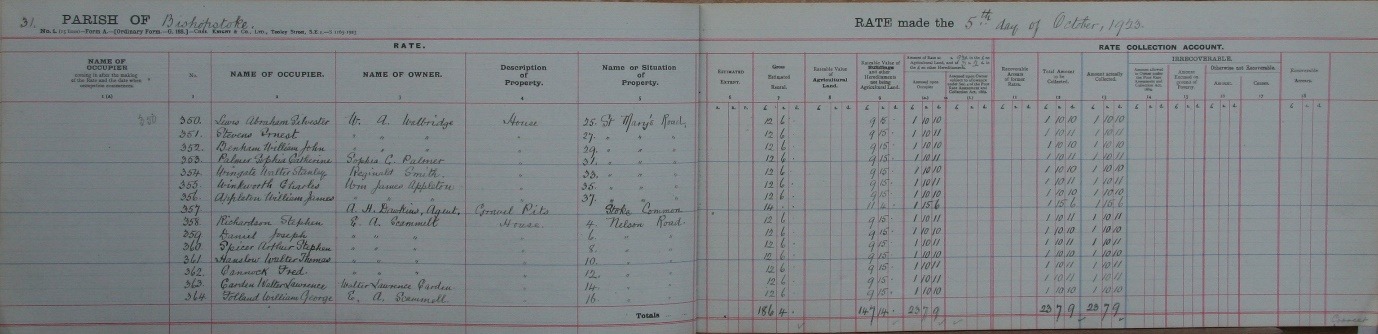 31. PARISH OF Bishopstoke. RATE made the 5th day of October, 1923.
RATE. RATE COLLECTION ACCOUNT.
NAME OF OCCUPIER No. NAME OF OCCUPIER. NAME OF OWNER. Description of Property. Name or Situation of Property. ESTIMATED EXTENT. Gross Estimated Rental. Rateable Value of Agricultural Land. Total Amount to be Collected. Amount actually Collected. IRRECOVERABLE.
350 350. Lewis Abraham Silvester W. A. Walbridge House 25. St Mary's Road, 12 6 9 15 1 10 10 1 10 10 1 10 10
351. Stevens Ernest " " " " 27. " " " 12 6 9 15 1 10 11 1 10 11 1 10 11
352. Denham William John " " " " 29. " " " 12 6 9 15 1 10 10 1 10 10 1 10 10
353. Palmer Sophia Catherine Sophia C. Palmer " 31. " " " 12 6 9 15 1 10 11 1 10 11 1 10 11
354. Wingate Walter Stanley Reginald Smith. " 33. " " " 12 6 9 15 1 10 10 1 10 10 1 10 10
355. Winkworth Charles Wm James Appleton " 35. " " " 12 6 9 15 1 10 11 1 10 11 1 10 11
356. Appleton William James " " " " 37. " " " 12 6 9 15 1 10 10 1 10 10 1 10 10
357. A. H. Dawkins, Agent, Gravel Pits Stoke Common 14 11 4 1 15 6 1 15 6 1 15 6
358. Richardson Stephen E. A. Scammell House 4. Nelson Road 12 6 9 15 1 10 11 1 10 11 1 10 11
359. Daniel Joseph " " " " 6. " " 12 6 9 15 1 10 10 1 10 10 1 10 10
360. Spicer Arthur Stephen " " " " 8. " " 12 6 9 15 1 10 11 1 10 11 1 10 11
361. Hanslow Walter Thomas " " " " 10. " " 12 6 9 15 1 10 10 1 10 10 1 10 10
362. Pannock Fred " " " " 12. " " 12 6 9 15 1 10 11 1 10 11 1 10 11
363. Carden Walter Lawrence Walter Lawrence Carden " 14. " " 12 6 9 15 1 10 11 1 10 11 1 10 11
364. Tolland William George E. A. Scammell " 16. " " 12 6 9 15 1 10 10 1 10 10 1 10 10
Totals 186 4 147 14 23 7 9 23 7 9 23 7 9